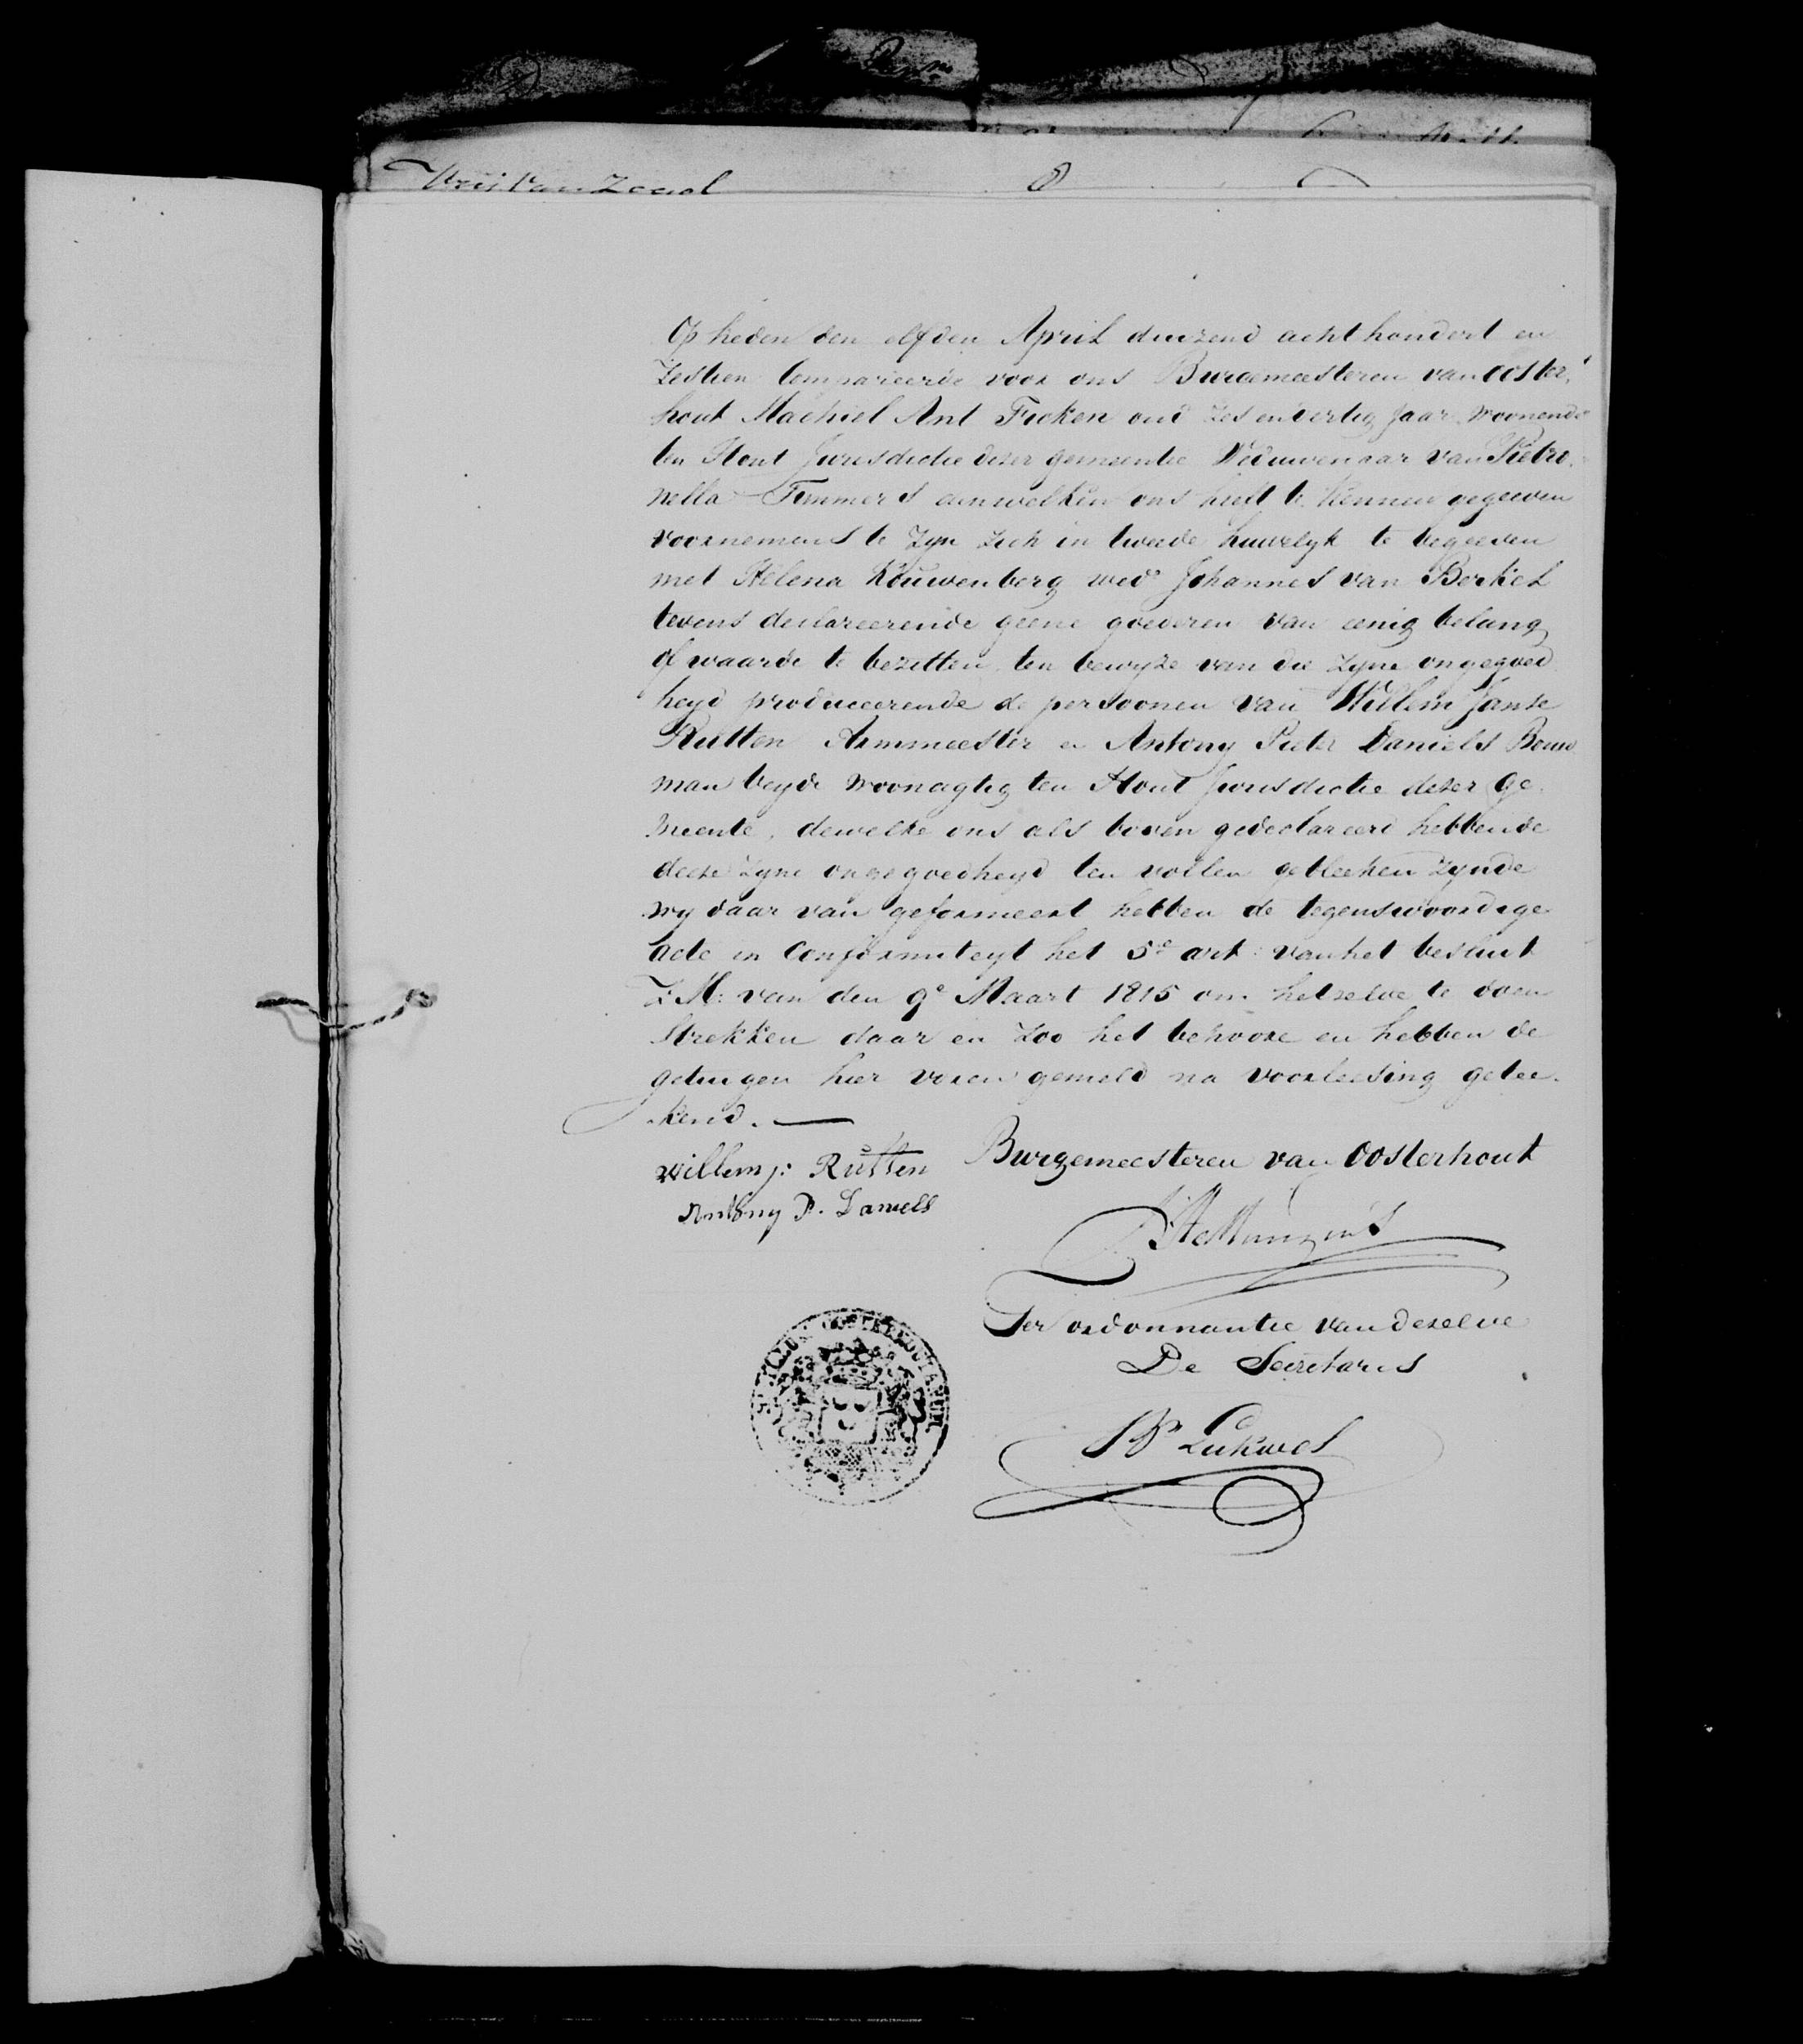 Vrij van Zegel
Op heden den elfden April duizend acht hondert en
Zestien Compareerde voor ons Burgemeesteren van Ooster,
hout Machiel Ant Ficken oud zes en dertig Jaar, woonende
ten Hout Jurisdictie dezer gemeente Weduwenaar van Pietro,
nella Timmers denwelken ons heeft te kennen gegeeven
voornemens te zyn zich in tweede huwelyk te begeeven
met Helena Kouwenberg wede Johannes van Berkel
tevens declareerende geene goederen van eenig belang
of waarde te bezitten, ten bewyze van die zyne ongegoed
heyd produceerende de persoonen van Willem Janse
Rutten Armmeester en Antony Pieter Daniels Bouw
man beyde woonagtig ten Hout Jurisdictie dezer ge,
meente, dewelke ons als boven gedeclareerd hebbende
deeze zyne ongegoedheyd ten vollen gebleeken zynde
wy daar van geformeert hebben de tegenswoordige
acte in Conformiteyt het 5e art: van het besluit
Z:M: van den 9e Maart 1815 om hetzelve te doen
strekken daar en zoo het behoore en hebben de
getuygen hier voren gemeld na voorleesing getee-
kend.
Willem j: Rutten
Burgemeesteren van Oosterhout
Antony P. Daniels
Ter ordonnantie van dezelve
De Secretaris